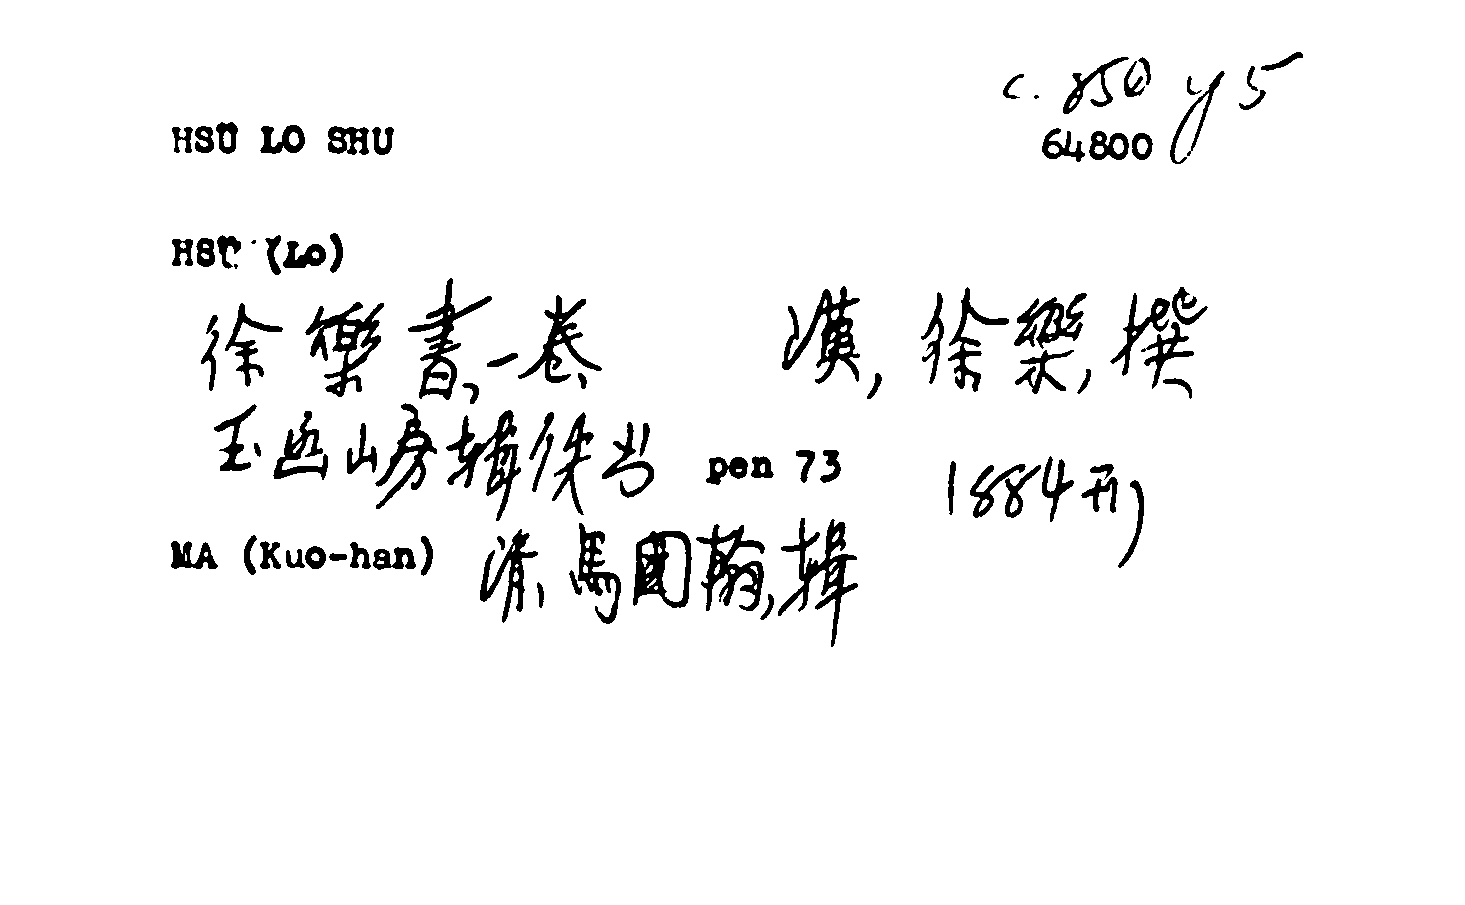 c. 850 y 5
HSÜ LO SHU 64800
HSÜ (Lo)
徐樂書,一卷 漢,徐樂,撰
玉函山房輯佚书 pen 73 1884刊
MA (Kuo-han) 清,馬國翰,輯